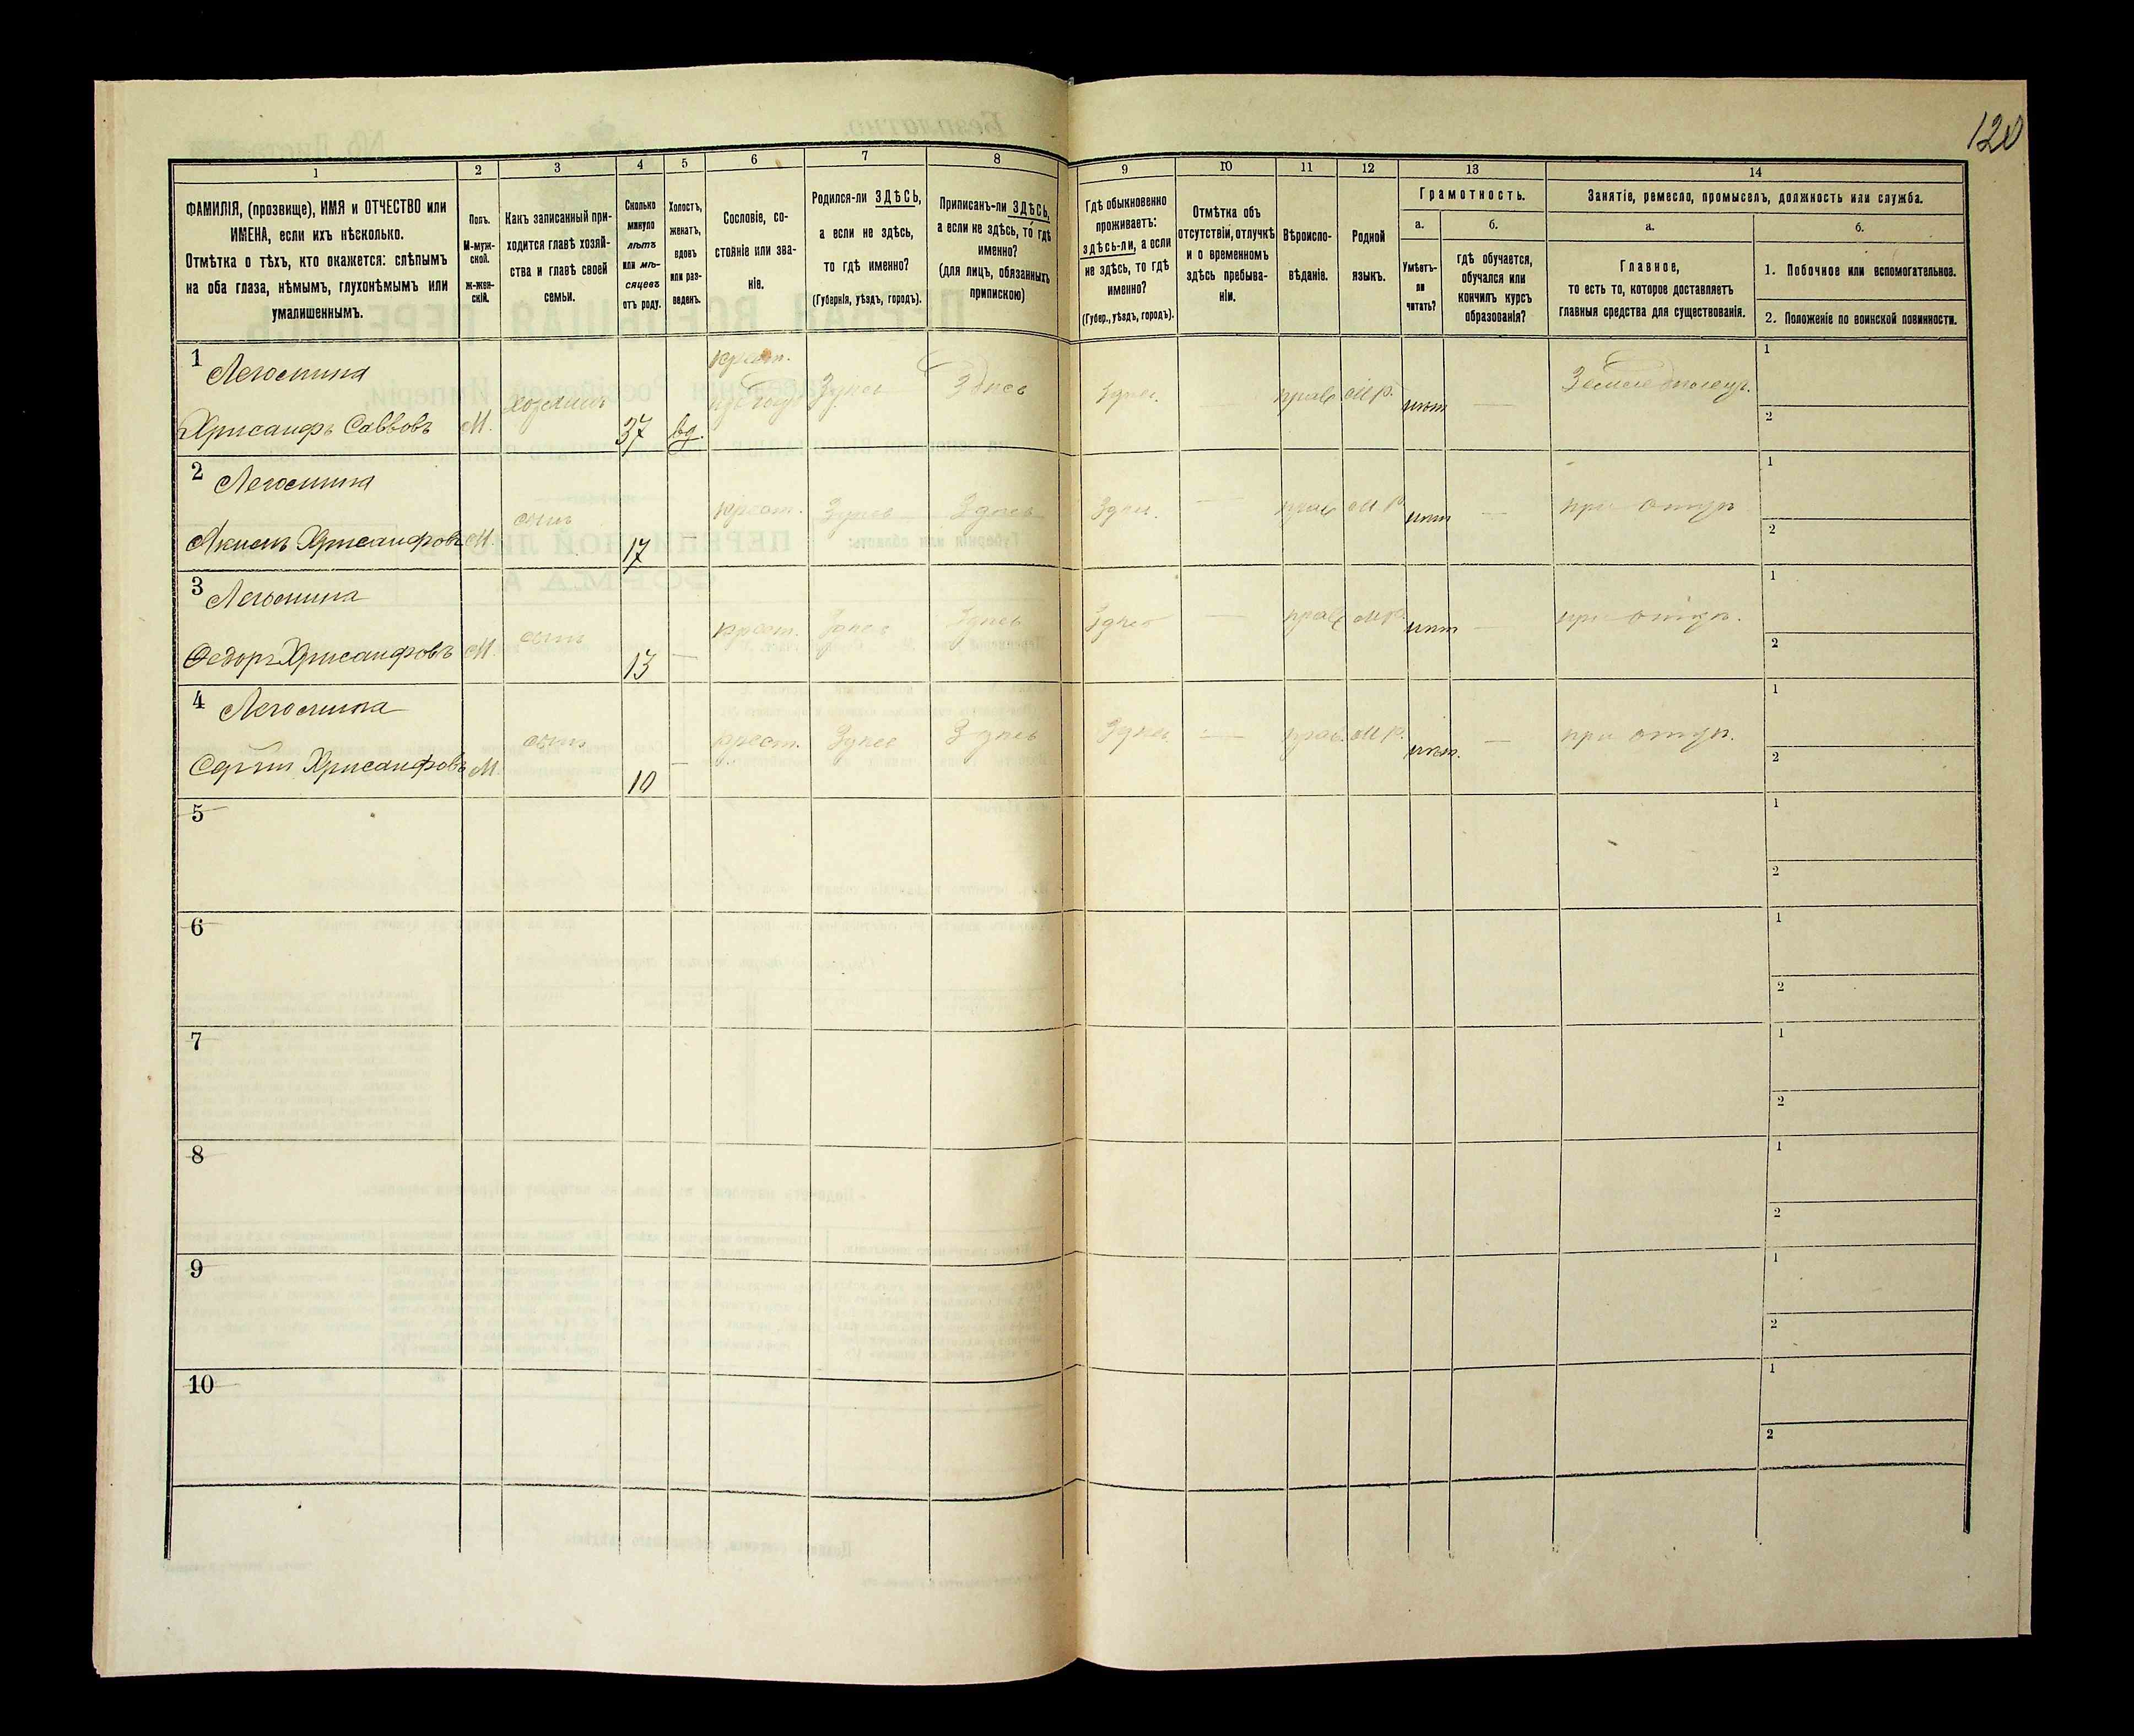 120
1
2
3
4
5
6
7
8
9
10
11
12
13
14
ФАМИЛІЯ, (прозвище), ИМЯ и ОТЧЕСТВО или
ИМЕНА, если ихъ нѣсколько.
Отмѣтка о тѣхъ, кто окажется: слѣпымъ
на оба глаза, нѣмымъ, глухонѣмымъ или
умалишеннымъ.
Полъ.
М-муж-
ской.
Ж-жен-
скій.
Какъ записанный при-
ходится главѣ хозяй-
ства и главѣ своей
семьи.
Сколько
минуло
лѣтъ
или мѣ-
сяцевъ
отъ роду.
Холостъ,
женатъ,
вдовъ
или раз-
веденъ.
Сословіе, со-
стояніе или зва-
ніе.
Родился-ли ЗДѢСЬ,
а если не здѣсь,
то гдѣ именно?
(Губернія, уѣздъ, городъ).
Приписанъ-ли ЗДѢСЬ,
а если не здѣсь, то гдѣ
именно?
(для лицъ, обязанныхъ
припискою)
Гдѣ обыкновенно
проживаетъ:
здѣсь-ли, а если
не здѣсь, то гдѣ
именно?
(Губер., уѣздъ, городъ).
Отмѣтка объ
отсутствіи, отлучкѣ
и о временномъ
здѣсь пребыва-
ніи.
Вѣроиспо-
вѣданіе.
Родной
языкъ.
Грамотность.
а.
Умѣетъ-
ли
читать?
б.
гдѣ обучается,
обучался или
кончилъ курсъ
образованія?
Занятіе, ремесло, промыселъ, должность или служба.
а.
Главное,
то есть то, которое доставляетъ
главныя средства для существованія.
б.
1. Побочное или вспомогательное.
2. Положеніе по воинской повинности.
1
Хрисанфъ Саввовъ М. хозяинъ 37 вд. крест. Здѣсь Здѣсь Здѣсь — прав. М.р. нѣт — Земледѣлецъ.
1
2
2
Хрисанфовъ М. сынъ 17 — крест. Здѣсь Здѣсь Здѣсь — прав. М.р. нѣт — при отцѣ
1
2
3
Ѳедоръ Хрисанфовъ М. сынъ 13 — крест. Здѣсь Здѣсь Здѣсь — прав. М.р. нѣт — при отцѣ.
1
2
4
Сергѣй Хрисанфовъ М. сынъ 10 — крест. Здѣсь Здѣсь Здѣсь — прав. М.р. нѣт. — при отцѣ.
1
2
5
1
2
6
1
2
7
1
2
8
1
2
9
1
2
10
1
2